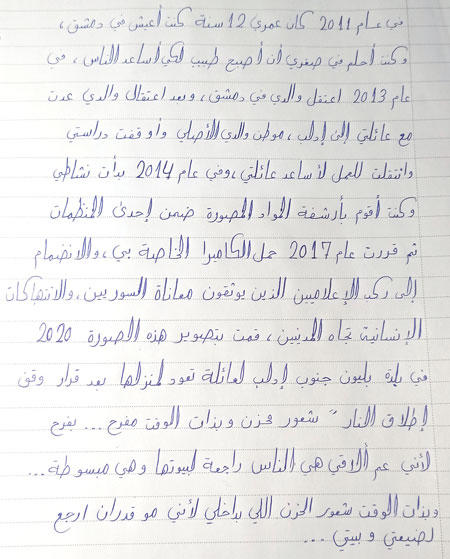 في عام 2011 كان عمري 12 سنة كنت أعيش في دمشق،
وكنت أحلم في صغري أن أصبح طبيب لكي أساعد الناس، في
عام 2013 اعتقل والدي في دمشق، وبعد اعتقال والدي عدت
مع عائلتي إلى إدلب، موطن والدي الأصلي وأوقفت دراستي
وانتقلت للعمل لأساعد عائلتي، وفي عام 2014 بدأت نشاطي
وكنت أقوم بأرشفة المواد المصورة ضمن إحدى المنظمات
ثم قررت عام 2017 حمل الكاميرا الخاصة بي، والانضمام
إلى ركب الإعلاميين الذين يوثقون معاناة السوريين، والانتهاكات
الإنسانية تجاه المدنيين، قمت بتصوير هذه الصورة 2020
في بلدة بليون جنوب إدلب لعائلة تعود لمنزلها بعد قرار وقف
إطلاق النار " شعور محزن وبذات الوقت مفرح ... بفرح
لأنني عم ألاقي هي الناس راجعة لبيوتها وهي مبسوطة ...
وبذات الوقت شعور الحزن اللي بداخلي لأني مو قدران ارجع
لضيعتي وبيتي ...